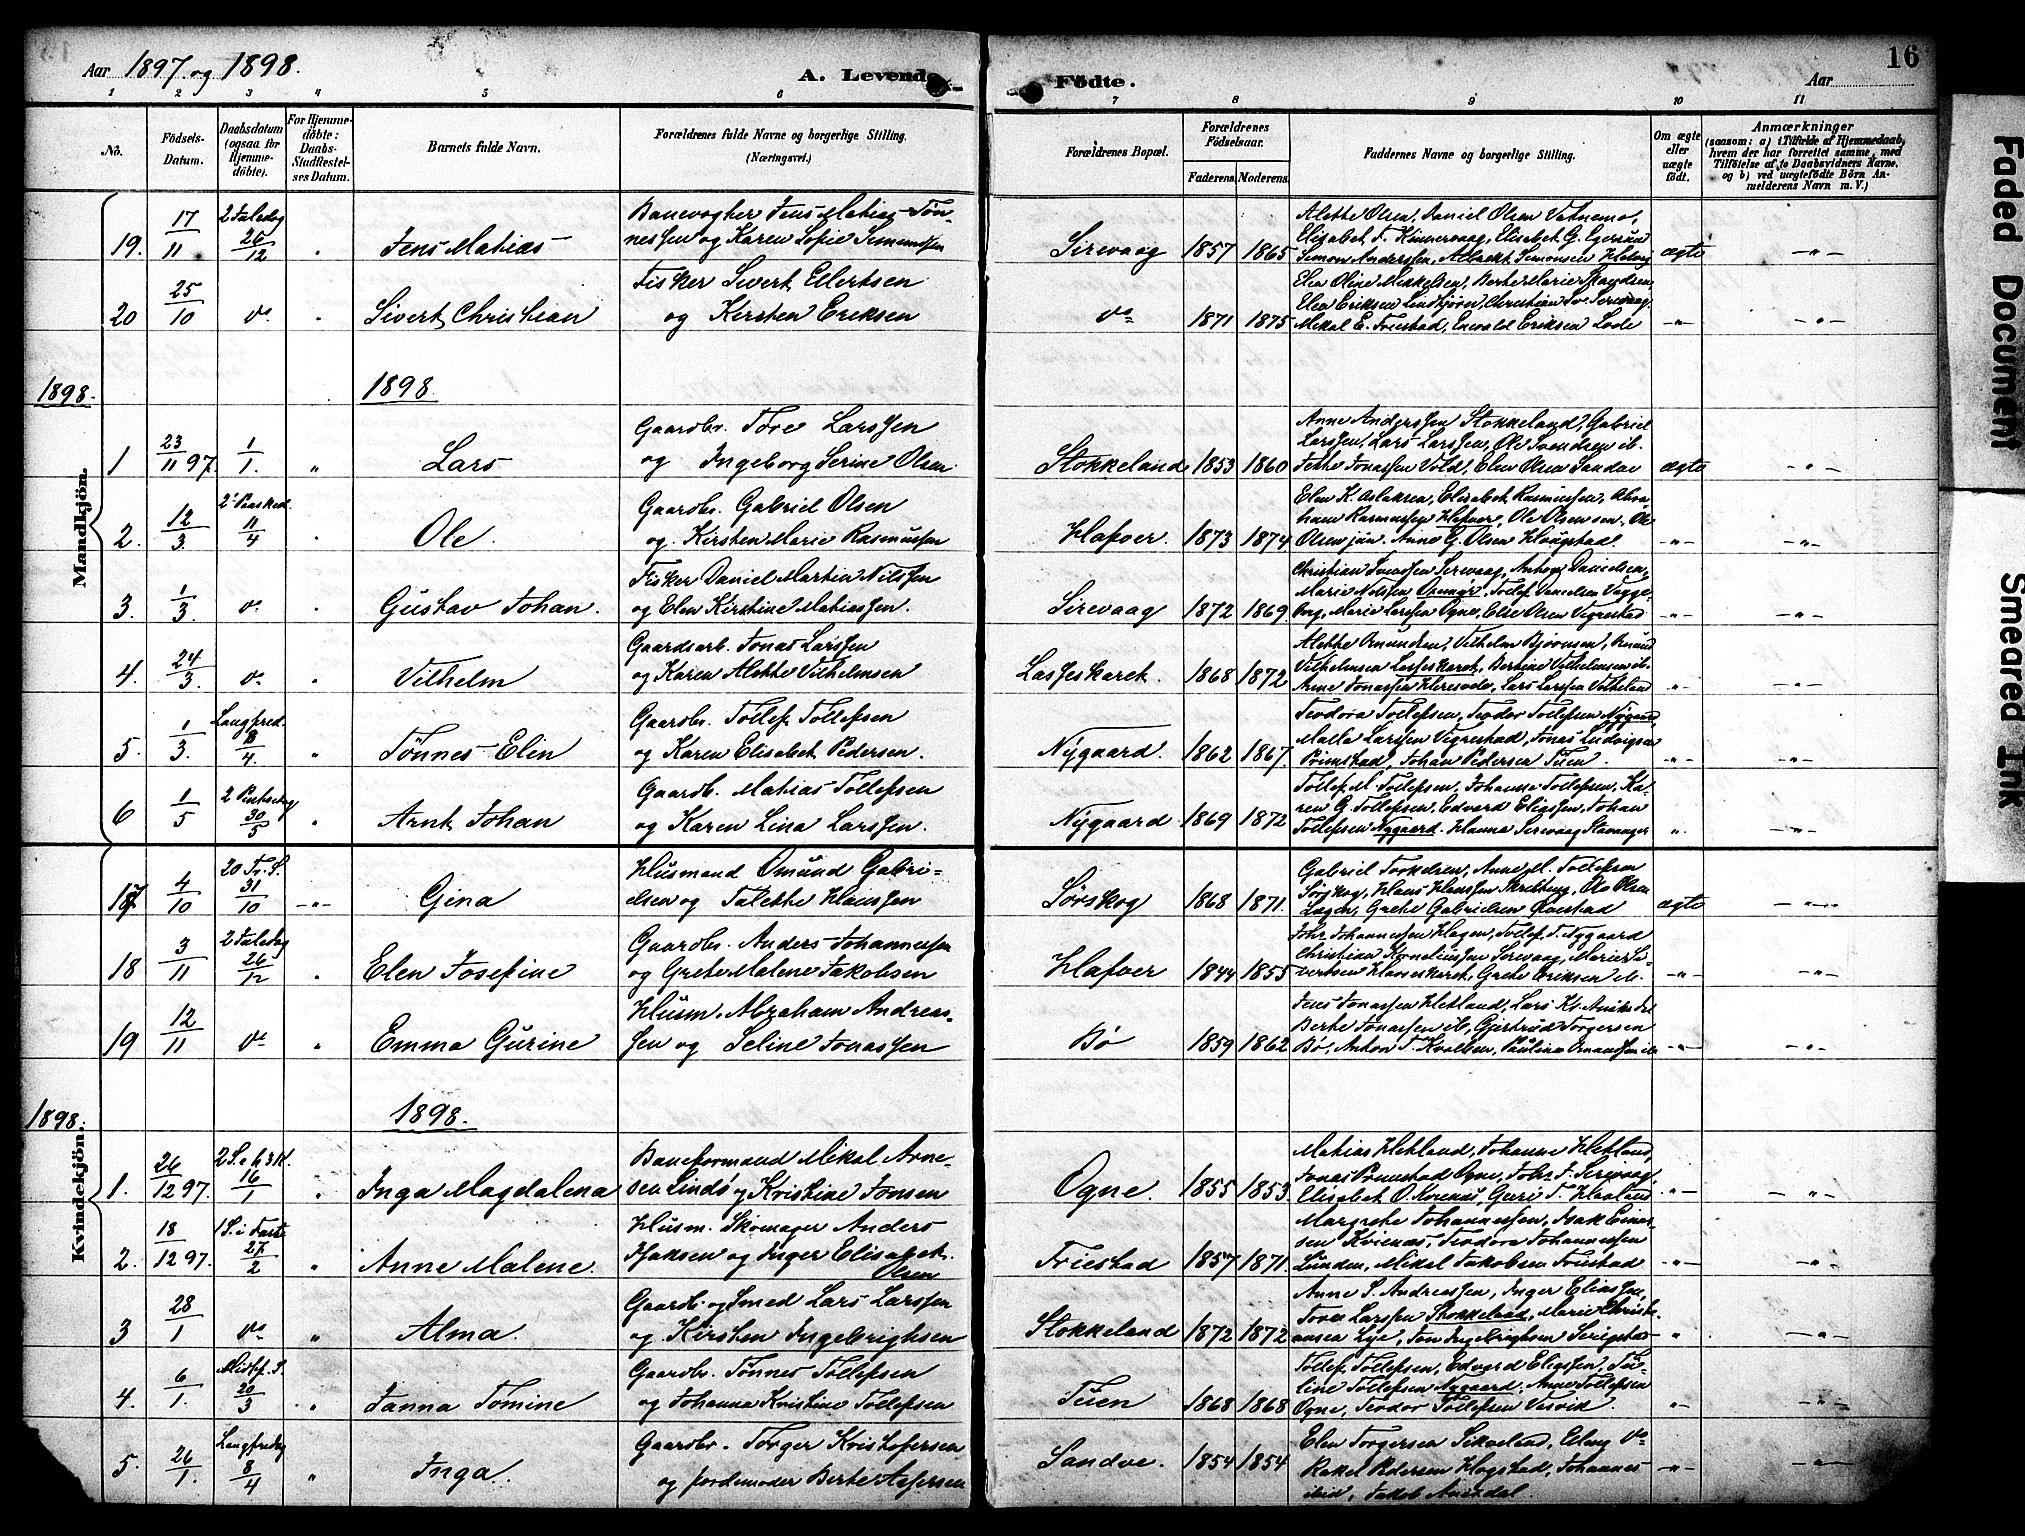 Aar 1897 og 1898.
A. Levende
Födte.
Aar
16
1 2 3 4 5 6 7 8 9 10 11
No.
Födsels-Datum.
Daabsdatum (ogsaa for Hjemme-döbte).
For Hjemme-döbte: Daabs-Stadfæstel-ses Datum.
Barnets fulde Navn.
Forældrenes fulde Navne og borgerlige Stilling. (Næringsvei.)
Forældrenes Bopæl.
Forældrenes Födselsaar.
Faderens. Moderens.
Faddernes Navne og borgerlige Stilling.
Om ægte eller uægte födt.
Anmærkninger
(saasom: a) i Tilfælde af Hjemmedaab, hvem der har forrettet samme, med Tilföielse af to Daabsvidners Navne, og b) ved uægtefödte Börn An-melderens Navn m. V.)
19. 17/11 2 Juledag 26/12 " Jens Matias
Banevogter Jens Matias Tön-
nessen og Karen Sofie Simundsen
Sirevaag 1857 1865
Alette Olsen, Daniel Olsen Vatnemo,
Elisabet T. Kinnervaag, Elisabet G. Egersund
Simon Anderssen, Albrekt Simonsen
ægte -"-
20 25/10 do " Sivert Christian
Fisker Sivert Ellertsen
og Kirsten Eriksen
do 1871 1875
Elen Oline Mikkelsen, Berte Marie
Elen Eriksen Lindtjörn, Christian
Mikal E. Friestad, Enevald Eriksen Lode
-"- -"-
1898. 1898.
Mandkjön.
1 23/11 97. 1/1. " Lars
Gaardbr. Tore Larssen
og Ingeborg Serine Olsen
Stokkeland 1853 1860
Anne Anderssen Stokkeland, Gabriel
Larssen, Lars Larssen, Ole Svendsen ib.
Jonassen Vold, Elen Olsen Sandve
ægte -"-
2. 12/3. 2' Paasked. 11/4 " Ole.
Gaardbr. Gabriel Olsen
og Kirsten Marie Rasmussen
Hafver. 1873 1874
Elen K. Aslaksen, Elisabet Rasmussen, Abra-
ham Rasmussen Hafver, Ole Olsen sen. Ole
Olsen jun. Anne G. Olsen Haugstad.
-"- -"-
3. 1/3. do " Gustav Johan.
Fisker Daniel Martin Nilssen
og Elen Kirstine Matiassen.
Sirevaag 1872 1869.
Christian Svendsen Serevaag, Danielsen,
Marie Nilssen, Tollef Danielsen
Marie Larssen Ogne, Elie Olsen Vigrestad
-"- -"-
4. 24/3. do " Vilhelm
Gaardarb. Jonas Larssen
og Karen Alette Vilhelmsen
Lasseskaret. 1868 1872
Alette Omundsen, Vilhelm Björnsen,
Vilhelmsen Lasseskaret, Bertine Vilhelmsen ib.
Anne Jonassen, Lars Larssen
-"- -"-
5. 1/3. Langfred. 8/4. " Tönnes Elin
Gaardbr. Tollef Tollefsen
og Karen Elisabet Pedersen.
Nygaard. 1862 1867.
Teodora Tollefsen, Teodor Tollefsen Nygaard,
Malla Larssen Vigrestad, Jonas Ludvigsen
Johan Pedersen Tuen.
-"- -"-
6 1/5 2 Pintsedag 30/5 " Arnt Johan
Gaardb. Matias Tollefsen
og Karen Lina Larssen.
Nygaard 1869 1872
Tollef M. Tollefsen, Johanne Tollefsen, Ka-
ren G. Tollefsen, Edvard Eliassen, Johan
Tollefsen Nygaard. Hanna Serevaag Stavanger
" -"-
17 4/10 20 Tr. S. 31/10 -"- Gina
Husmand Omund Gabri-
elsen og Talette Hanssen
Sörskog 1868 1871.
Gabriel Torkelsen, Anne M. Tollefsen
Sörskog, Hans Hanssen, Ole Olsen
Grete Gabrielsen
ægte -"-
18 3/11 2 Juledag 26/12 " Elen Josefine
Gaardbr. Anders Johannessen
og Grete Malene Jakobsen
Hafver 1844 1855
Johs. Johannessen Hagen, Tollef T. Nygaard
Christian Korneliussen Serevaag, Marie Si-
vertsen, Grete Eriksen ib.
-"- -"-
19 12/11 do " Emma Gurine
Husm. Abraham Andreas-
sen og Seline Jonassen
Bö 1859 1862
Jens Jonassen Hetland, Lars
Berte Jonassen ib, Gjertrud Torgersen
Bö, Anton T. Kvalben, Pauline
-"- -"-
1898. 1898.
Kvindekjön.
1. 26/12 97. 2 S. e. h 3 K. 16/1 " Inga Magdalena
Baneformand Mikal Arne-
sen Lindö og Kristine Jonsen
Ogne. 1855 1853.
Matias Hetland, Johanne Hetland,
Jonas Ogne, Johs. J. Serevaag,
Elisabet O. Guri T. Haaland
-"- -"-
2. 18/12 97. 1 S. i Faste 27/2 " Anne Malene.
Husm. Skomager Anders
Isaksen og Inger Elisabet
Olsen
Friestad 1857 1871.
Margrete Johannessen, Isak Einar-
sen, Teodora Johannessen
Lunden, Mikal Jakobsen Friestad
-"- -"-
3 28/1 do " Alma.
Gaardb. og Smed Lars Larssen
og Kirsten Ingebrigtsen
Stokkeland 1872 1872
Anne S. Andreassen, Inger Eliassen,
Tore Larssen Stokkeland, Marie Christi-
ansen Lye, Jon Ingebrigtsen
" -"-
4. 6/1. Midf. S. 20/3 " Janna Tomine
Gaardbr. Tönnes Tollefsen
og Johanna Kristine Tollefsen
Tuen 1868 1868
Tollef Tollefsen, Edvard Eliassen,
line Tollefsen Nygaard, Anne Tollefsen
Ogne, Teodor Tollefsen
-"- -"-
5. 26/1. Langfredag 8/4 " Inga.
Gaardbr. Torger Kristofersen
og Jordemoder Berte Asersen
Sandve. 1854 1854
Elen Torgersen, do
Rakel Pedersen, Johannes
ibid, Jakob
-"- -"-
Faded Document
Smeared Ink